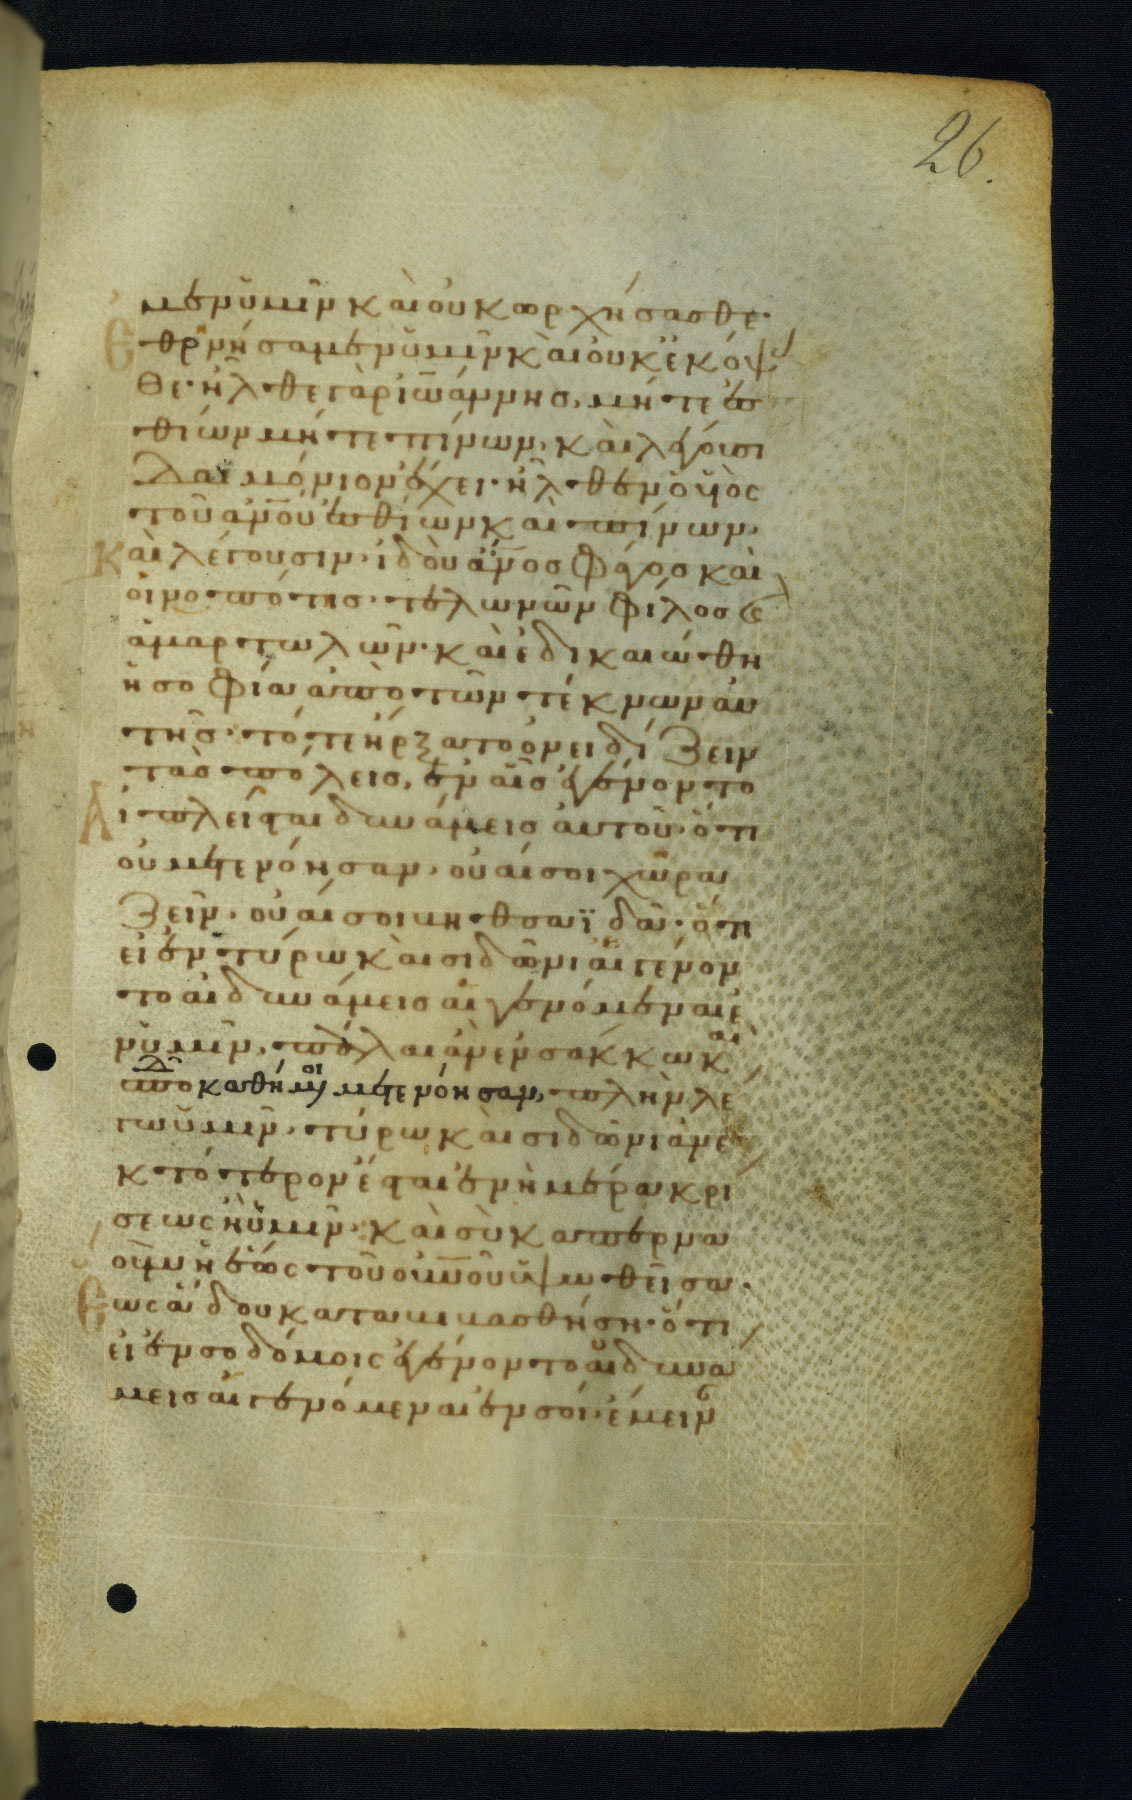 26.
μεν ὑμῖν καὶ οὐκ ὠρχήσασθε·
ἐθρηνήσαμεν ὑμῖν καὶ οὐκ ἐκόψα
σθε· ἦλθε γὰρ ἰωάννης, μήτε ἐσ
θίων μήτε πίνων, καὶ λέγουσι
δαιμόνιον ἔχει· ἦλθεν ὁ υἱὸς
τοῦ ἀνου ἐσθίων καὶ πίνων,
καὶ λέγουσιν, ἰδοὺ ἄνος φάγος καὶ
οἰνοπότης· τελωνῶν φίλος καὶ
ἁμαρτωλῶν· καὶ ἐδικαιώθη
ἡ σοφία ἀπὸ τῶν τέκνων αὐ
τῆς· τότε ἤρξατο ὀνειδίζειν
τὰς πόλεις, ἐν αἷς ἐγένοντο
αἱ πλεῖσται δυνάμεις αὐτοῦ· ὅτι
οὐ μετενόησαν, οὐαί σοι χωρα
ζεῖν, οὐαί σοι βηθσαϊδάν· ὅτι
εἰ ἐν τύρω καὶ σιδῶνι αἱ γένον
το αἱ δυνάμεις αἱ γενόμεναι ἐ
ν ὑμῖν, πάλαι ἂν ἐν σάκκω καὶ
σποδῶ καθήμενοι μετενόησαν, πλὴν λέ
γω ὑμῖν, τύρω καὶ σιδῶνι ἀνε
κτότερον ἔσται ἐν ἡμέρα κρί
σεως ἢ ὑμῖν· καὶ σὺ καπερνα
οὺμ ἡ ἕως τοῦ οὐνοῦ ὑψωθεῖσα·
ἕως ἅδου καταβιβασθήση· ὅτι
εἰ ἐν σοδόμοις ἐγένοντο αἱ δυνά
μεις αἱ γενόμεναι ἐν σοί· ἔμειν